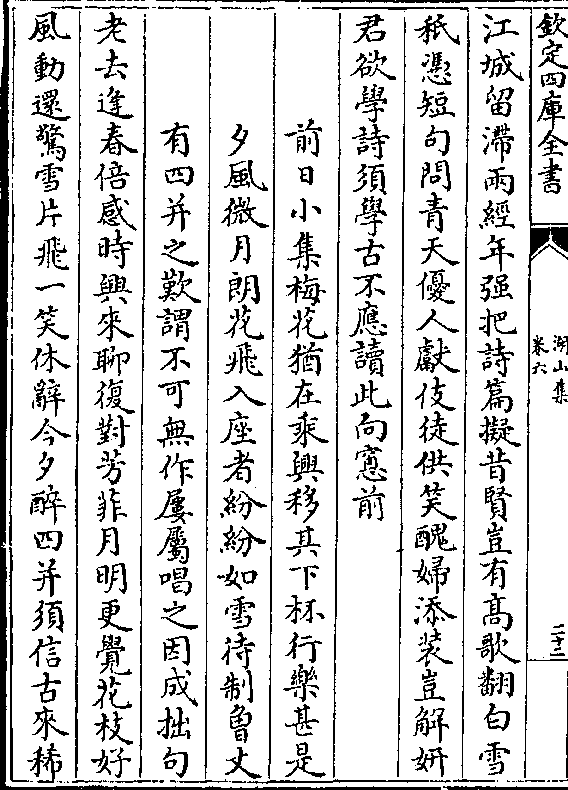 欽定四庫全書
湖山集
卷六
二十二
江城留滯兩經年强把詩篇擬昔賢豈有髙歌翻白雪
秪憑短句問青天優人獻伎徒供笑醜婦添装豈解妍
君欲學詩須學古不應讀此向窻前
前日小集梅花猶在乘興移其下杯行樂甚是
夕風微月朗花飛入座者紛紛如雪待制魯丈
有四并之歎謂不可無作屢屬唱之因成拙句
老去逢春倍感時興來聊復對芳菲月明更覺花枝好
風動還驚雪片飛一笑休辭今夕醉四并須信古來稀